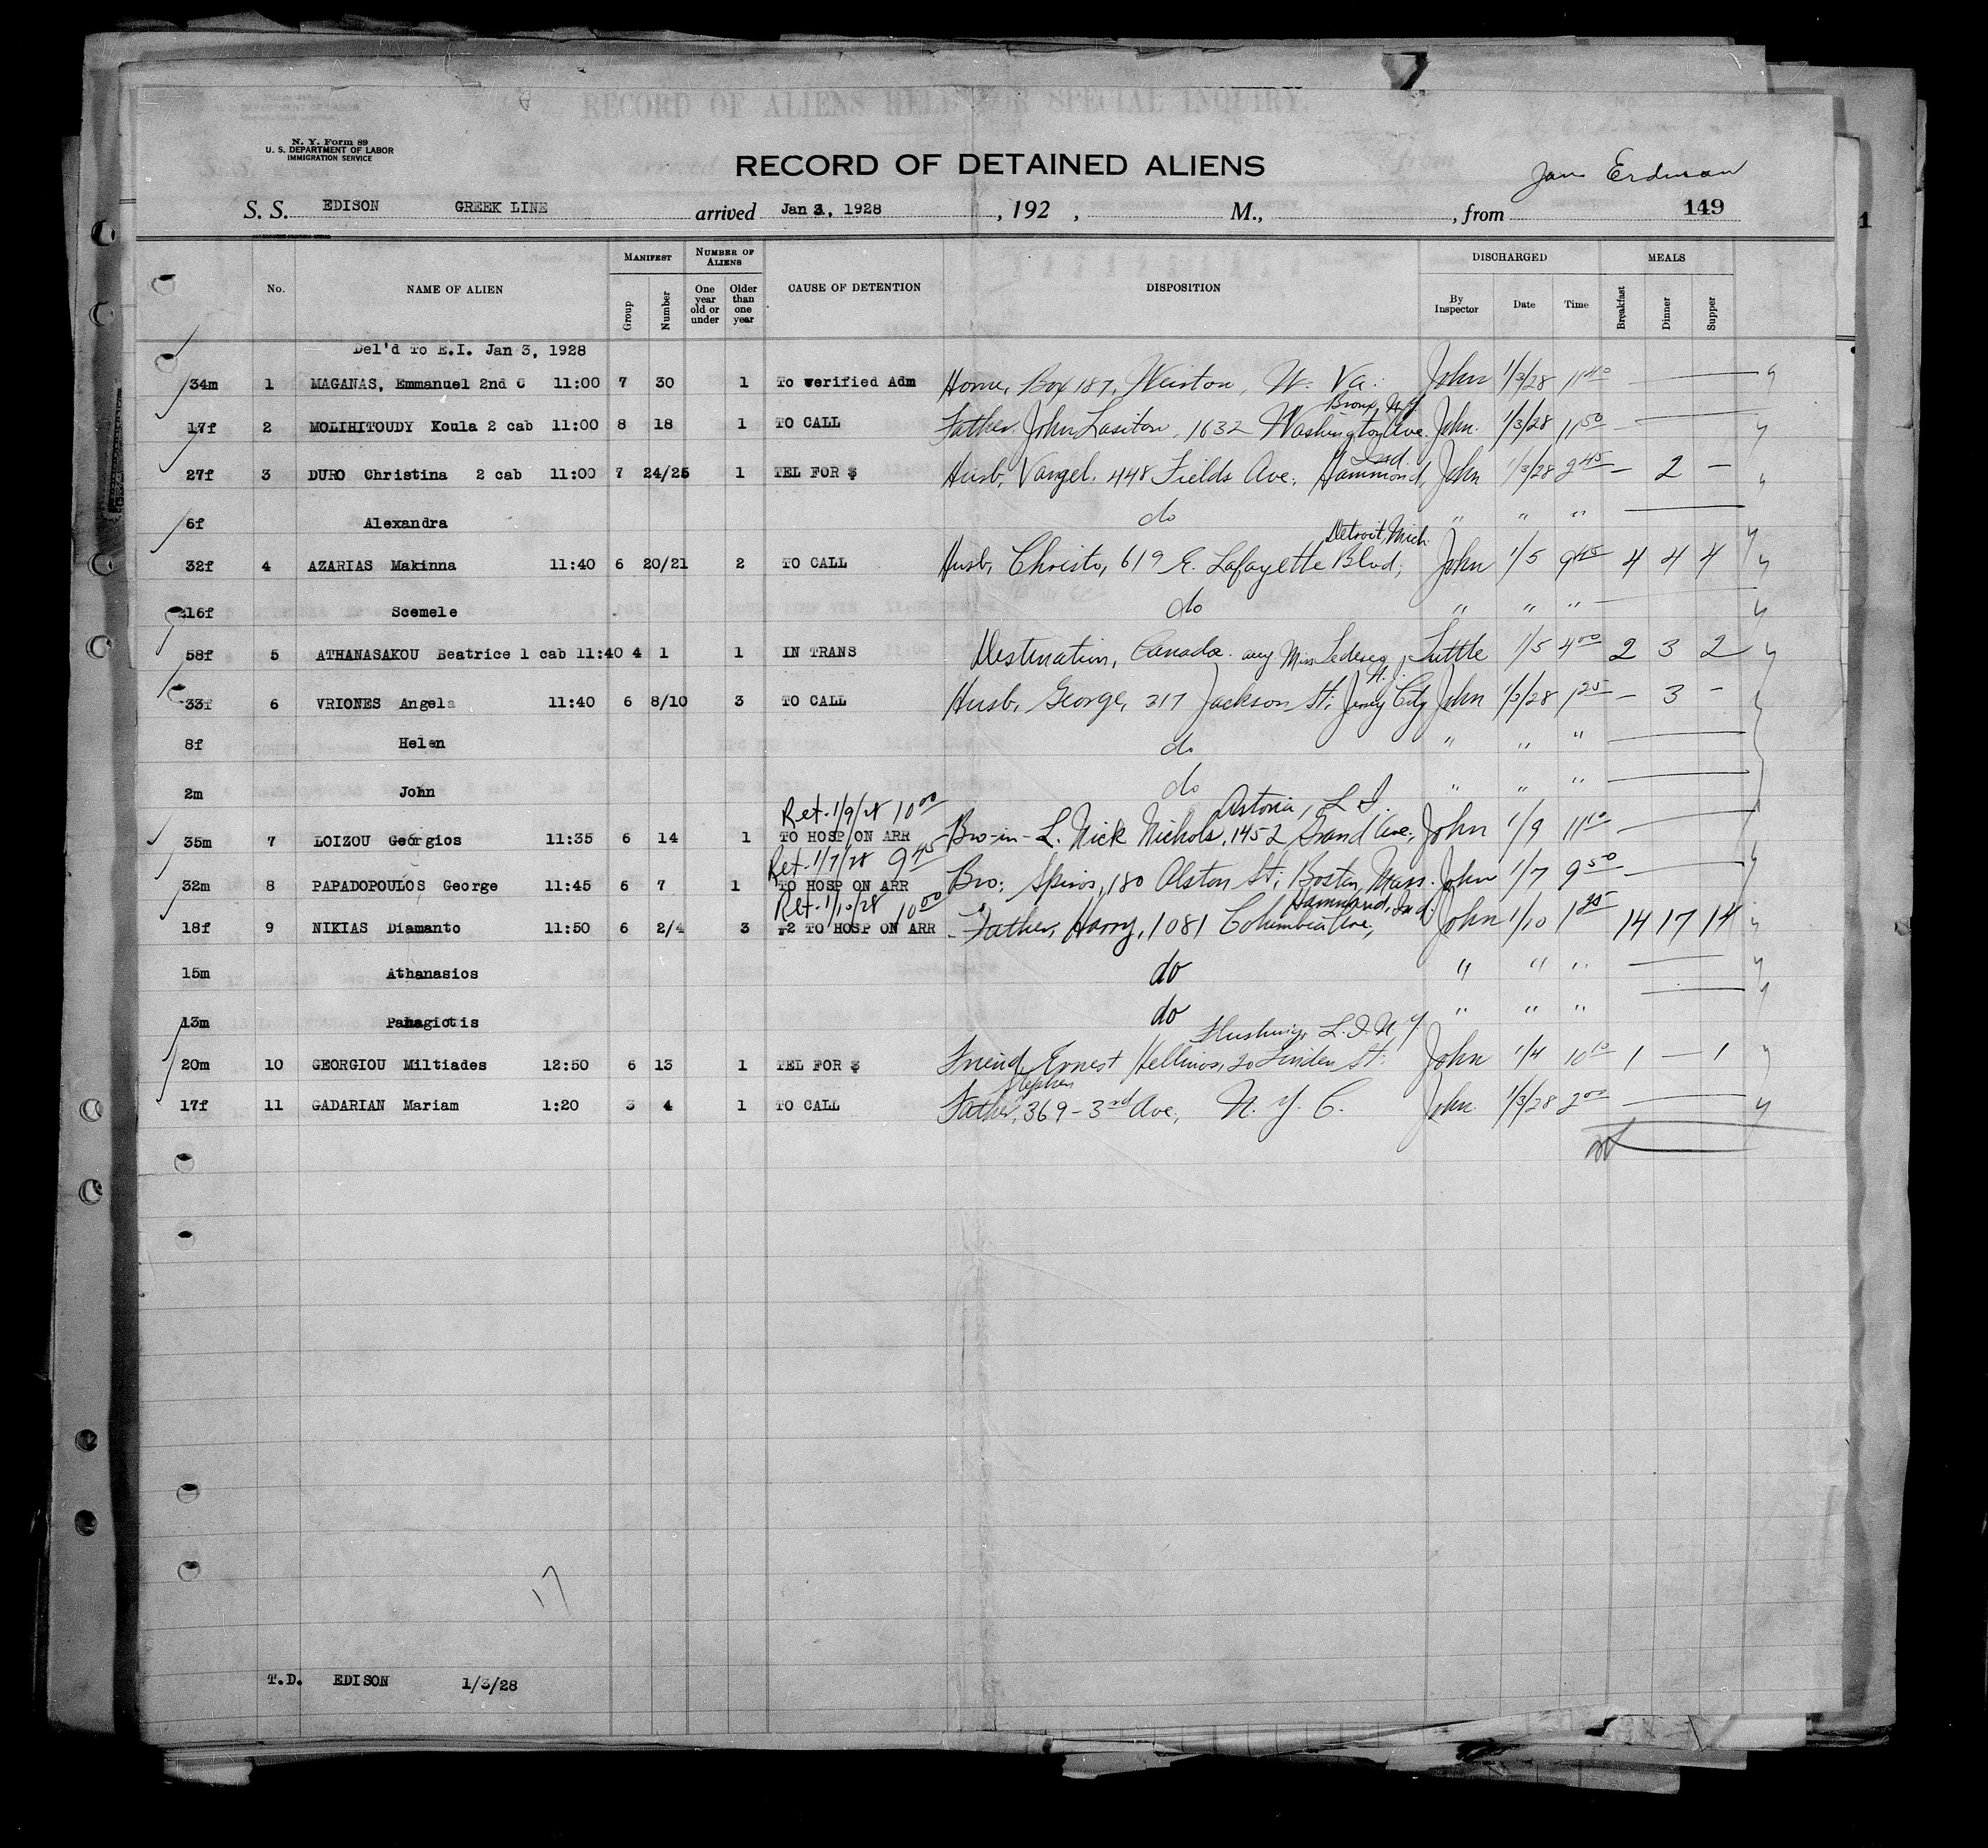 N. Y. Form 89
U. S. DEPARTMENT OF LABOR
IMMIGRATION SERVICE
RECORD OF ALIENS HELD FOR SPECIAL INQUIRY.
RECORD OF DETAINED ALIENS
Erdman
S. S. EDISON GREEK LINE arrived Jan 3, 1928 , 192 , M., , from 149
No. NAME OF ALIEN MANIFEST Group Number NUMBER OF ALIENS One year old or under Older than one year CAUSE OF DETENTION DISPOSITION DISCHARGED By Inspector Date Time MEALS Breakfast Dinner Supper
Del'd To E.I. Jan 3, 1928
34m 1 MAGANAS, Emmanuel 2nd C 11:00 7 30 1 To verified Adm Home, Box 187, Weirton, W. Va. John 1/3/28 11 40
Bronx, N.Y.
17f 2 MOLIHITOUDY Koula 2 cab 11:00 8 18 1 TO CALL Father John Lasiton, 1632 Washington Ave. John 1/3/28 11 50
Ind.
27f 3 DURO Christina 2 cab 11:00 7 24/25 1 TEL FOR $ Husb, Vangel. 448 Fields Ave, Hammond, John 1/3/28 2 45 – 2 –
6f Alexandra do " " "
Detroit, Mich.
32f 4 AZARIAS Makinna 11:40 6 20/21 2 TO CALL Husb, Christo, 619 E. Lafayette Blvd, John 1/5 9 45 4 4 4
16f Scemele do " " "
58f 5 ATHANASAKOU Beatrice 1 cab 11:40 4 1 1 IN TRANS Destination, Canada. Miss Tuttle 1/5 4 00 2 3 2
N.J.
33f 6 VRIONES Angela 11:40 6 8/10 3 TO CALL Husb, George, 317 Jackson St, Jersey City John 1/3/28 1 25 – 3 –
8f Helen do " " "
2m John do " " "
Ret. 1/9/28 10 00 Astoria, L. I.
35m 7 LOIZOU Georgios 11:35 6 14 1 TO HOSP ON ARR Bro-in-L. Nick Nichols, 1452 Grand Ave, John 1/9 11 10
Ret. 1/7/28 9 45
32m 8 PAPADOPOULOS George 11:45 6 7 1 TO HOSP ON ARR Bro; Spiros, 180 Alston St; Boston, Mass. John 1/7 9 50
Ret. 1/10/28 10 00 Hammond, Ind.
18f 9 NIKIAS Diamanto 11:50 6 2/4 3 -2 TO HOSP ON ARR Father, Harry, 1081 Columbia Ave, John 1/10 1 25 14 17 14
15m Athanasios do " " "
13m Panagiotis do " " "
Flushing, L.I. N.Y.
20m 10 GEORGIOU Miltiades 12:50 6 13 1 TEL FOR $ Friend, Ernest Hellinos, 20 Linden St. John 1/4 10 10 1 – 1
Stephen
17f 11 GADARIAN Mariam 1:20 3 4 1 TO CALL Father, 369 - 3rd Ave, N. Y. C. John 1/3/28 2 00
17
T.D. EDISON 1/3/28